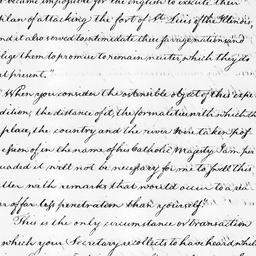 became impossible for the english to execute their
plan of attacking the fort of St. Luis of the Illinois,
and it also served to intimidate these savage nations, and
oblige them to promise to remain neuter, which they do
at present."
"When you consider the ostensible object of this expe-
dition, the distance of it, the formalities with which the
place, the country and the river were taken pos-
ession of in the name of his Catholic Majesty I am per
uaded it will not be necessary for me to swell this
tter with remarks that would occur to a
r of far less penetration than yourself."
This is the only circumstance or transaction
which your Secretary recollects to have heard which